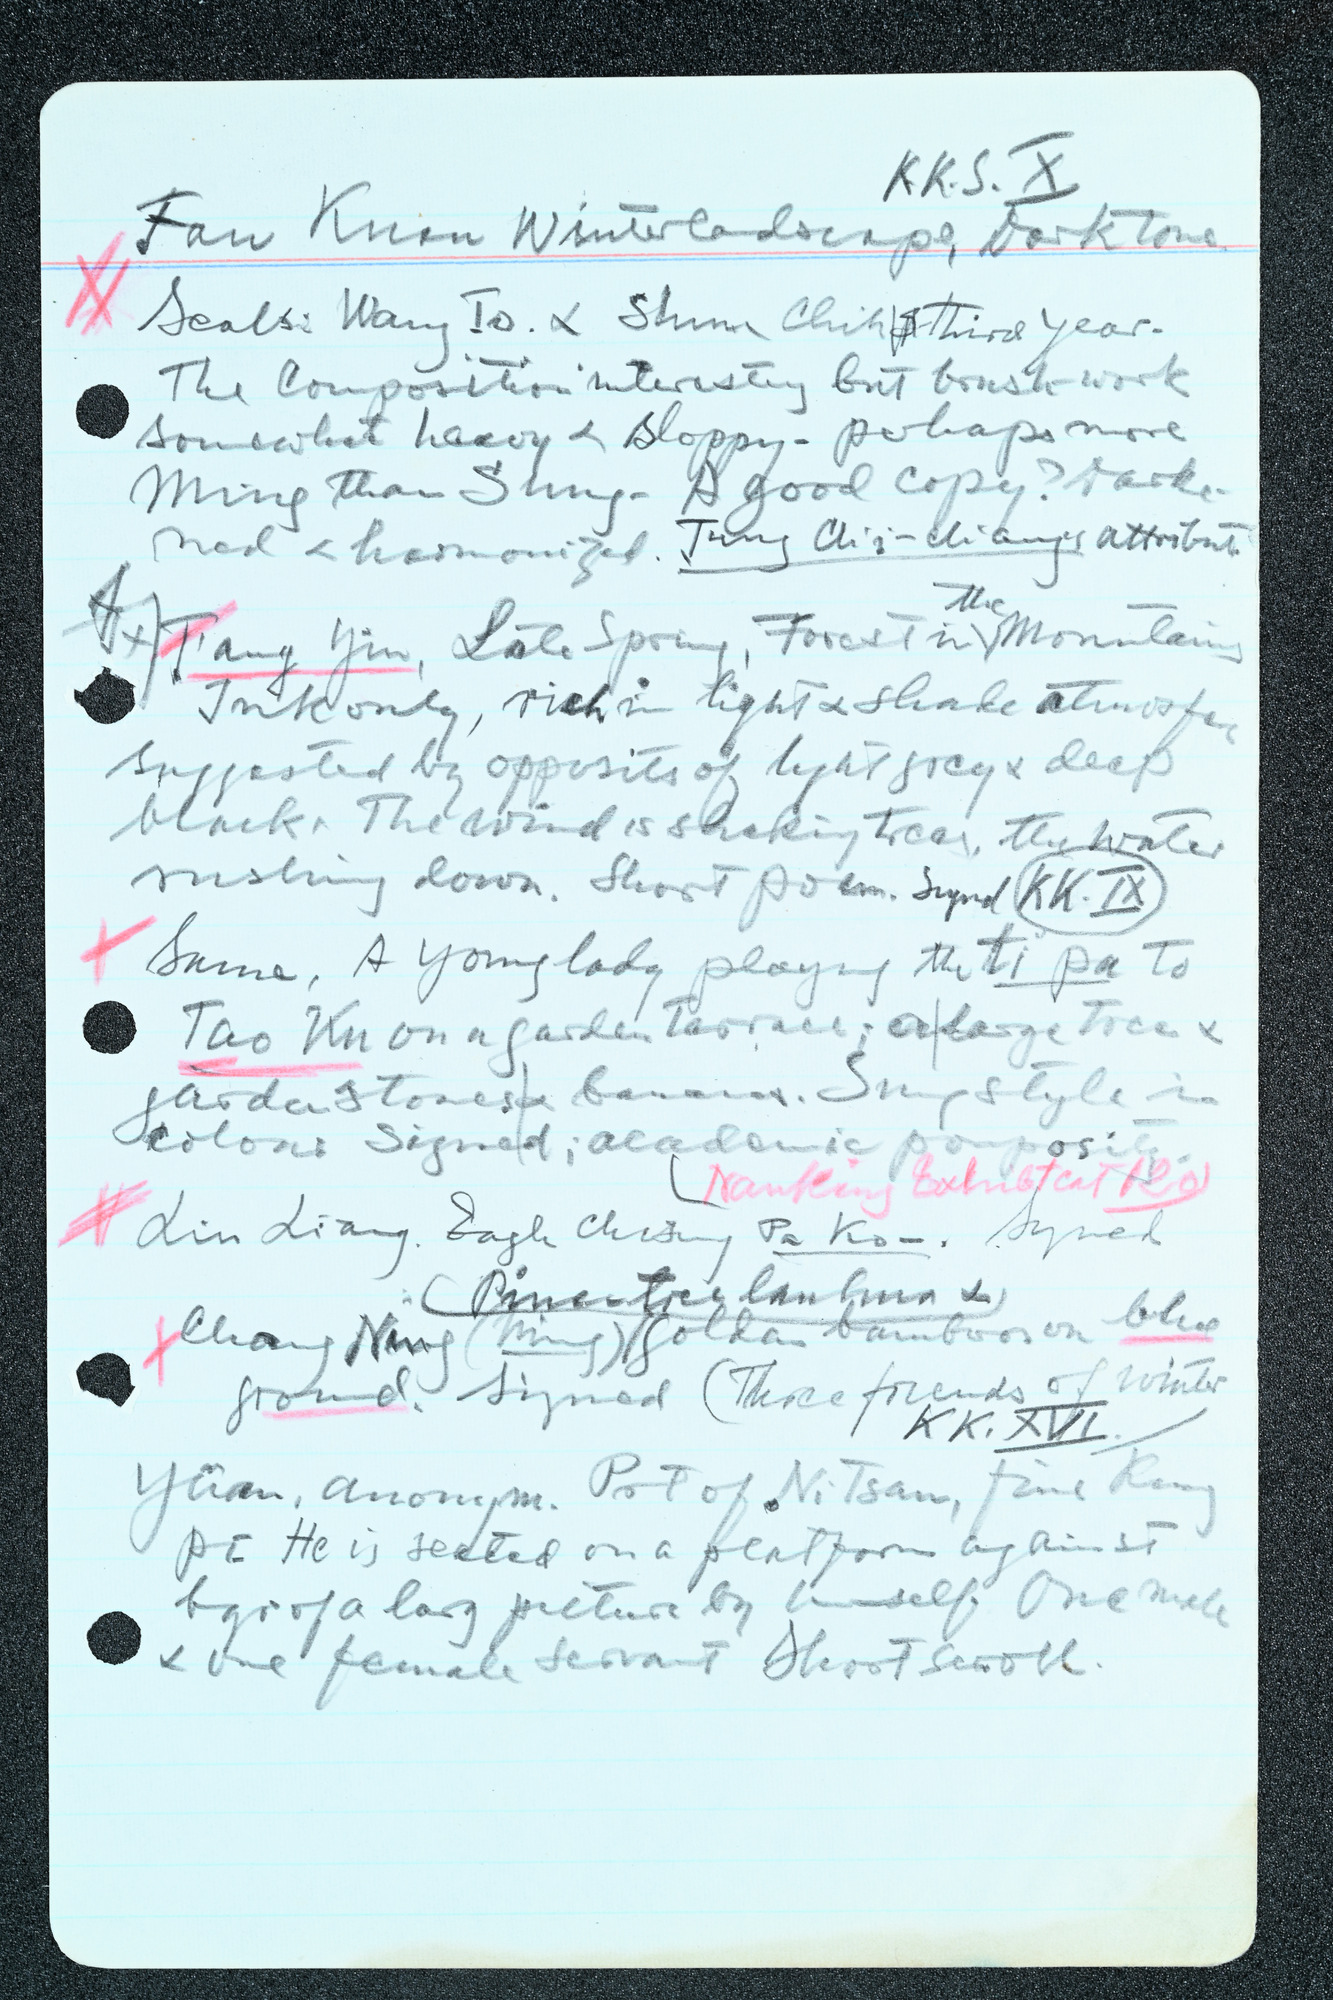 K.K.S. X
Fan Kuan Winterlandscape, Dark tone
Seals: Wang To. & Shun Chih third year.
The Composition interesting but brushwork
somewhat heavy & sloppy - perhaps more
Ming than Sung - A good copy? Darke-
ned & harmonized. Tung Ch'i-ch'ang's attribut.
T'ang Yin, Late Spring, Forest in the Mountains
Ink only, rich in light & shade atmosfere
suggested by opposits of lyht grey & deep
black. The wind is shaking trees, the water
rushing down. Short poem. Signd KK. IX
Same, A Young lady playing the ti pa to
Tao Ku on a garden terrace; large trees &
garden stones & bananas. Sung style in
colours Signed; academic
Nanking Exhibt cat 120
Lin Liang. Eagle chasing Pa Ko-. Signed
(Pinetree lanhua &)
Chang Ning (Ming) golden bamboos on blue
ground. Signed (Three friends of winter
KK. XVI.
Yüan, anonym. Port of Ni Tsan, fine Kung
pi He is seated on a platform against
bgr of a larg picture by himself. One male
& one female servant Short scroll.